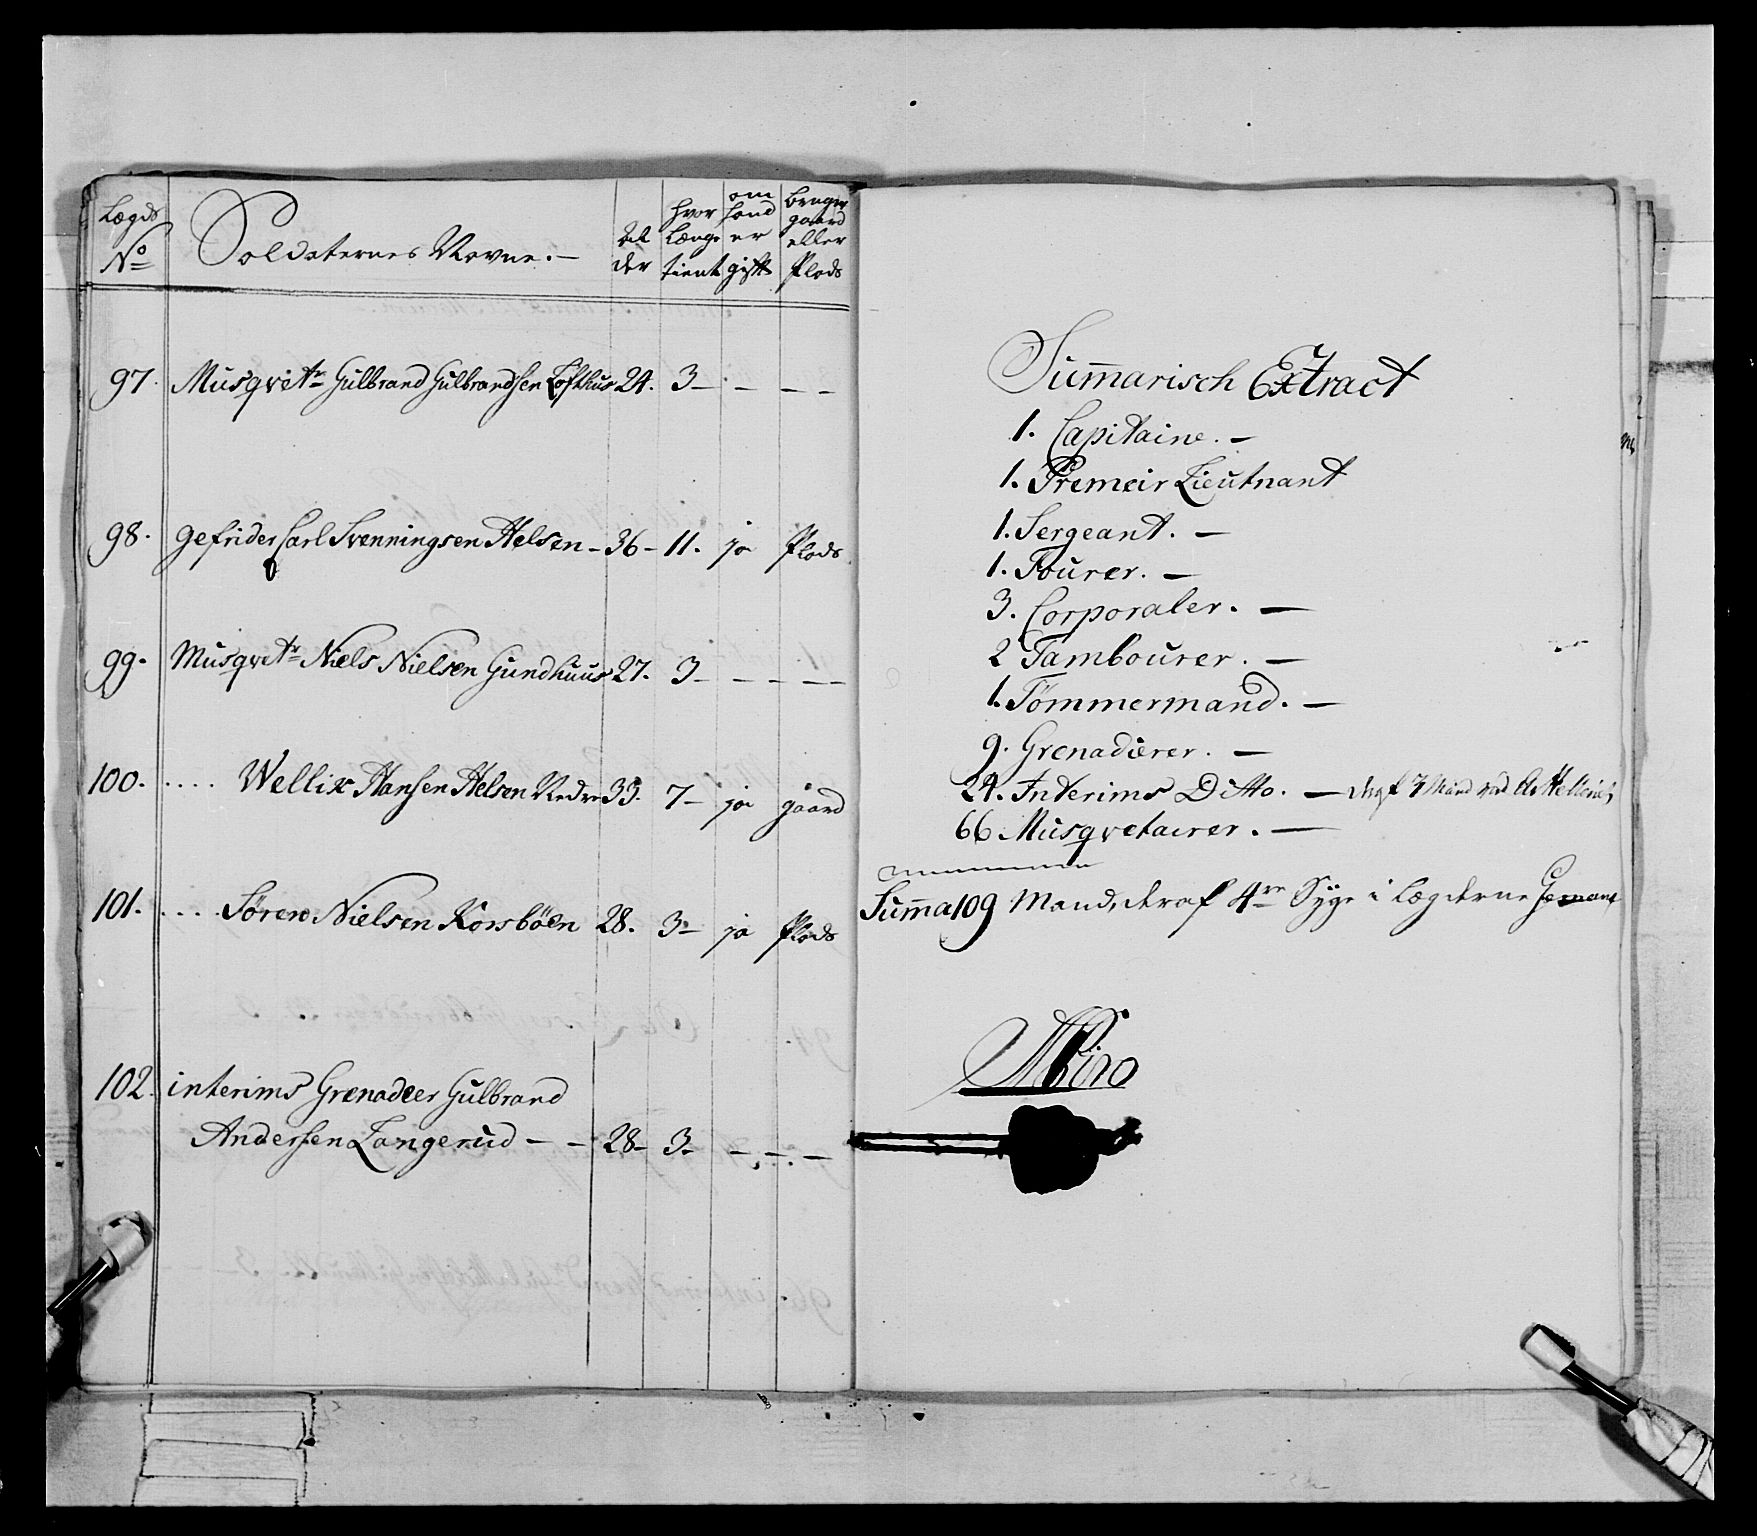 Lægds No
Soldaternes Navne. —
Al der
hvor Længe tient
om hand er gift
bruger gaard eller Plads
97. Musqvetr Gulbrand Gulbrandsen Lofthus 24. 3 — — — —
98. gefrider Carl Svenningsen Helsen — 36 — 11. ja Plads
99. Musqvetr Niels Nielsen Gundhuus 27. 3 — — — —
100. .... Wellix Hansen Helsen Nedre 33. 7 — ja gaard
101. .... Søren Nielsen Korsböen 28. 3 — ja Plads
102. interims Grenadeer Gulbrand
Andersen Langerud — — 28 — 3 — — — —
Summarisch Extract
1. Capitaine. —
1. Premeir Lieutnant
1. Sergeant. —
1. Fourer. —
3. Corporaler. —
2 Tambourer. —
1. Tömmermand. —
9. Grenadierer. —
24. Interims Ditto. — 7 Mand
66 Musqvetairer. —
Summa 109 Mand, deraf 4re Syge i Lægderne